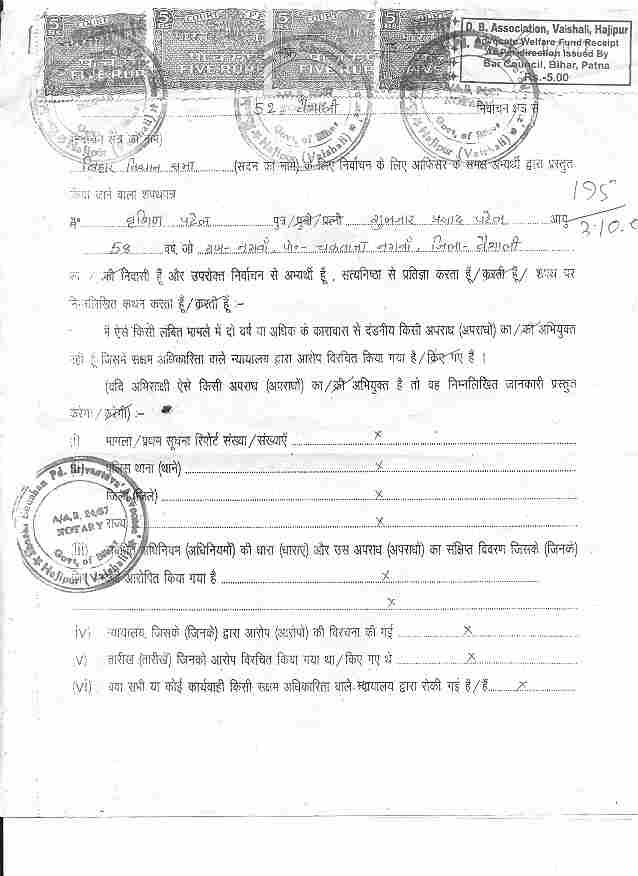 5 COURT FEE 5 5 COURT FEE 5
FIVE RUPEES FIVE RUPEES
D. B. Association, Vaishali, Hajipur
Advocate Welfare Fund Receipt
As Per direction Issued By
Bar Council, Bihar, Patna
Rs.-5.00
52- वैशाली निर्वाचन क्षेत्र से
(निर्वाचन क्षेत्र का नाम)
बिहार विधान सभा (सदन का नाम) के लिए निर्वाचन के लिए आफिसर के समक्ष अभ्यर्थी द्वारा प्रस्तुत
किया जाने वाला शपथपत्र
195
मैं वृशिण पटेल पुत्र/पुत्री/पत्नी प्रसाद पटेल आयु
58 वर्ष, जो ग्राम- नगवाँ, पो०- नगवाँ, जिला- वैशाली
का / की निवासी हूँ और उपरोक्त निर्वाचन से अभ्यर्थी हूँ, सत्यनिष्ठा से प्रतिज्ञा करता हूँ/करती हूँ/ शपथ पर
निम्नलिखित कथन करता हूँ/करती हूँ :-
मैं ऐसे किसी लंबित मामले में दो वर्ष या अधिक के कारावास से दंडनीय किसी अपराध (अपराधों) का/की अभियुक्त
नहीं हूँ जिसमें सक्षम अधिकारिता वाले न्यायालय द्वारा आरोप विरचित किया गया है/किए गए हैं ।
(यदि अभिसाक्षी ऐसे किसी अपराध (अपराधों) का/की अभियुक्त है तो वह निम्नलिखित जानकारी प्रस्तुत
करेगा/करेगी) :-
(i) मामला/प्रथम सूचना रिपोर्ट संख्या/संख्याएँ x
पुलिस थाना (थाने) x
जिला (जिले) x
राज्य x
(iii) अधिनियम (अधिनियमों) की धारा (धाराएं) और उस अपराध (अपराधों) का संक्षिप्त विवरण जिसके (जिनके)
आरोपित किया गया है x
x
iv) न्यायालय, जिसके (जिनके) द्वारा आरोप (आरोपों) की विरचना की गई x
v) तारीख (तारीखें) जिनको आरोप विरचित किया गया था/किए गए थे x
(vi) क्या सभी या कोई कार्यवाही किसी सक्षम अधिकारिता वाले न्यायालय द्वारा रोकी गई है/हैं x
Pd. Srivastava Advocate
NOTARY
Govt. of Bihar
Hajipur (Vaishali)